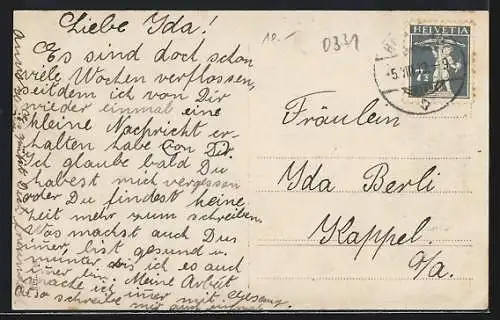 Liebe Ida!
Es sind doch schon
viele Wochen verflossen,
seitdem ich von Dir
wieder einmal eine
kleine Nachricht er-
halten habe von Dir.
Ich glaube bald Du
habest mich vergessen
oder Du findest keine
Zeit mehr zum schreiben.
Was machst auch Du
imer, bist gesund u.
munter bis ich es auch
imer bin. Meine Arbeit
mache ich imer mit Gesang.
Also schreibe mir auch einmal
10.-
0331
HELVETIA
7½
Fräulein
Ida Berli
Kappel.
a/A.